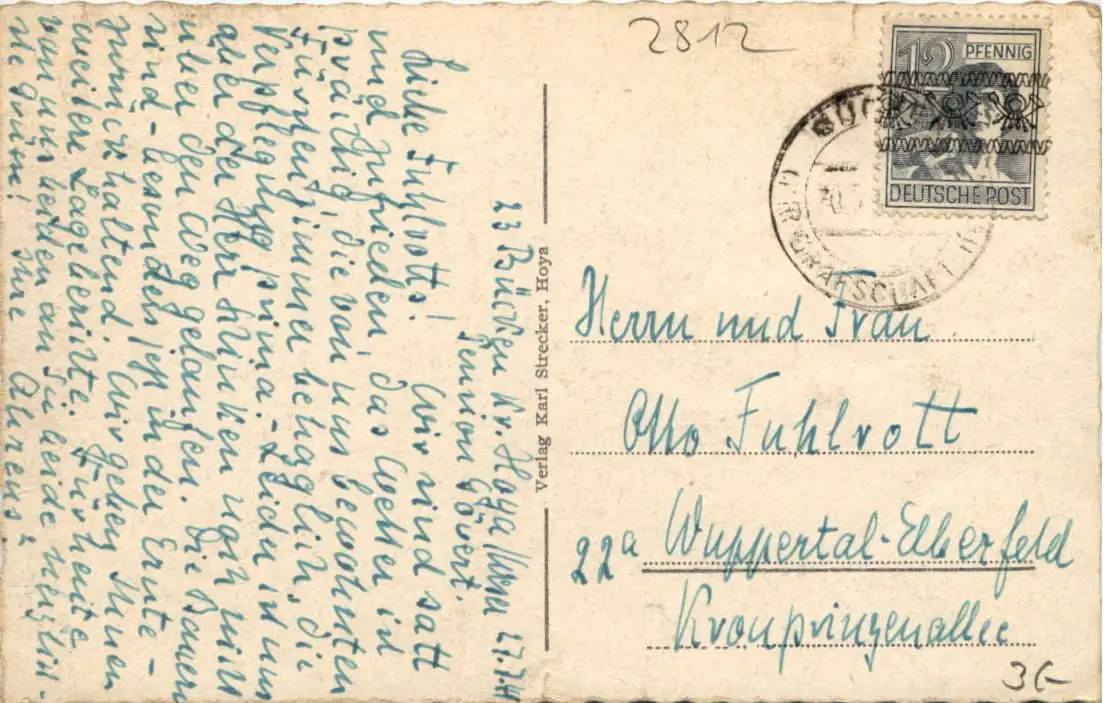 23 Bücken Kr. Hoya/Weser 27.7.48
Pension Gövert.
Liebe Fuhlrotts! Wir sind satt
und zufrieden, das Wetter ist
prächtig, die von uns bewohnten
Fürstenzimmer behaglich, die
Verpflegung prima. - Leider ist uns
aber der Herr Schinken noch nicht
über den Weg gelaufen. Die Bauern
sind - besonders jetzt in der Ernte -
zurückhaltend. Wir geben Ihnen
weitere Lageberichte. Für heute
von uns beiden an Sie beide herzlich-
ste Grüße! Ihre
Verlag Karl Strecker, Hoya
2812
12 PFENNIG
DEUTSCHE POST
GRAFSCHAFT
Herrn und Frau
Otto Fuhlrott
22a Wuppertal-Elberfeld
Kronprinzenallee
3.-